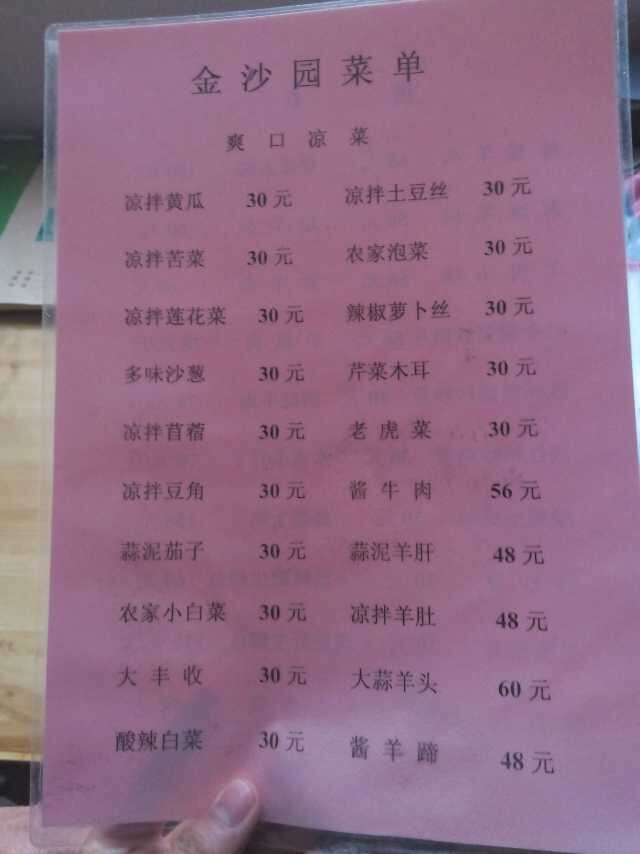 金沙园菜单
爽口凉菜
凉拌黄瓜 30元 凉拌土豆丝 30元
凉拌苦菜 30元 农家泡菜 30元
凉拌莲花菜 30元 辣椒萝卜丝 30元
多味沙葱 30元 芹菜木耳 30元
凉拌苜蓿 30元 老虎菜 30元
凉拌豆角 30元 酱牛肉 56元
蒜泥茄子 30元 蒜泥羊肝 48元
农家小白菜 30元 凉拌羊肚 48元
大丰收 30元 大蒜羊头 60元
酸辣白菜 30元 酱羊蹄 48元